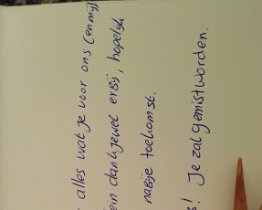 alles wat je voor ons (en mij)
ein dankjewel erbij, hopelijk
nabije toekomst.
s! Je zal gemist worden.